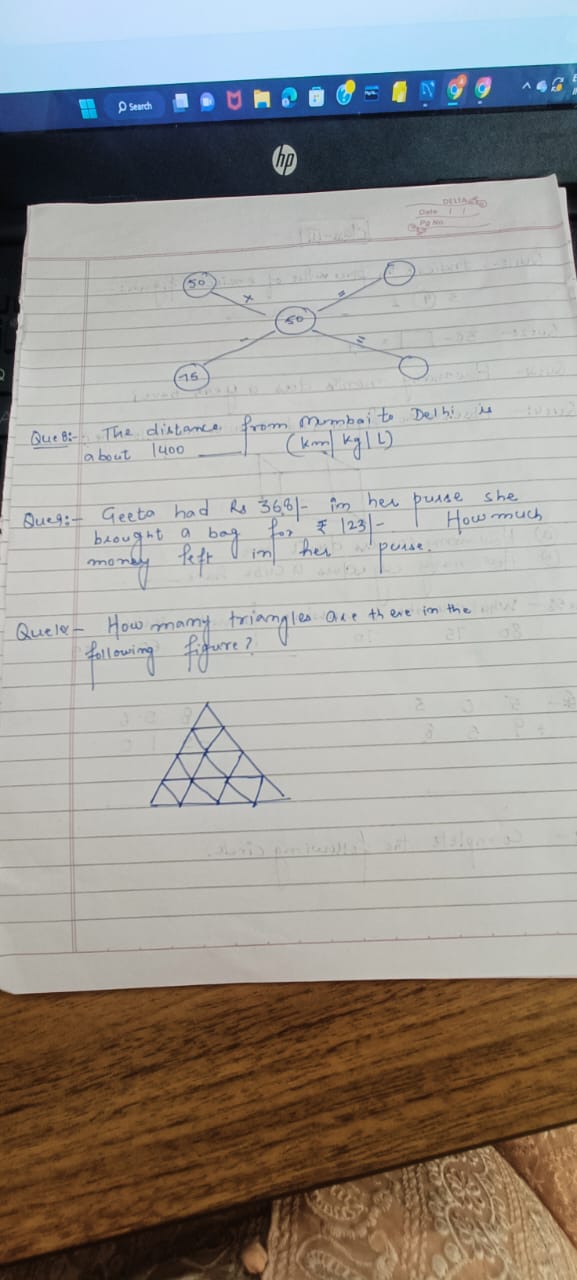 Search
hp
DELTA
Date / /
Pg No
50
×
=
50
-
=
15
Que 8:- The distance from Mumbai to Delhi is
about 1400 ____ (km/kg/L)
Que9:- Geeta had Rs 368/- in her purse she
brought a bag for ₹ 123/- How much
money left in her purse.
Que10- How many triangles are there in the
following figure?